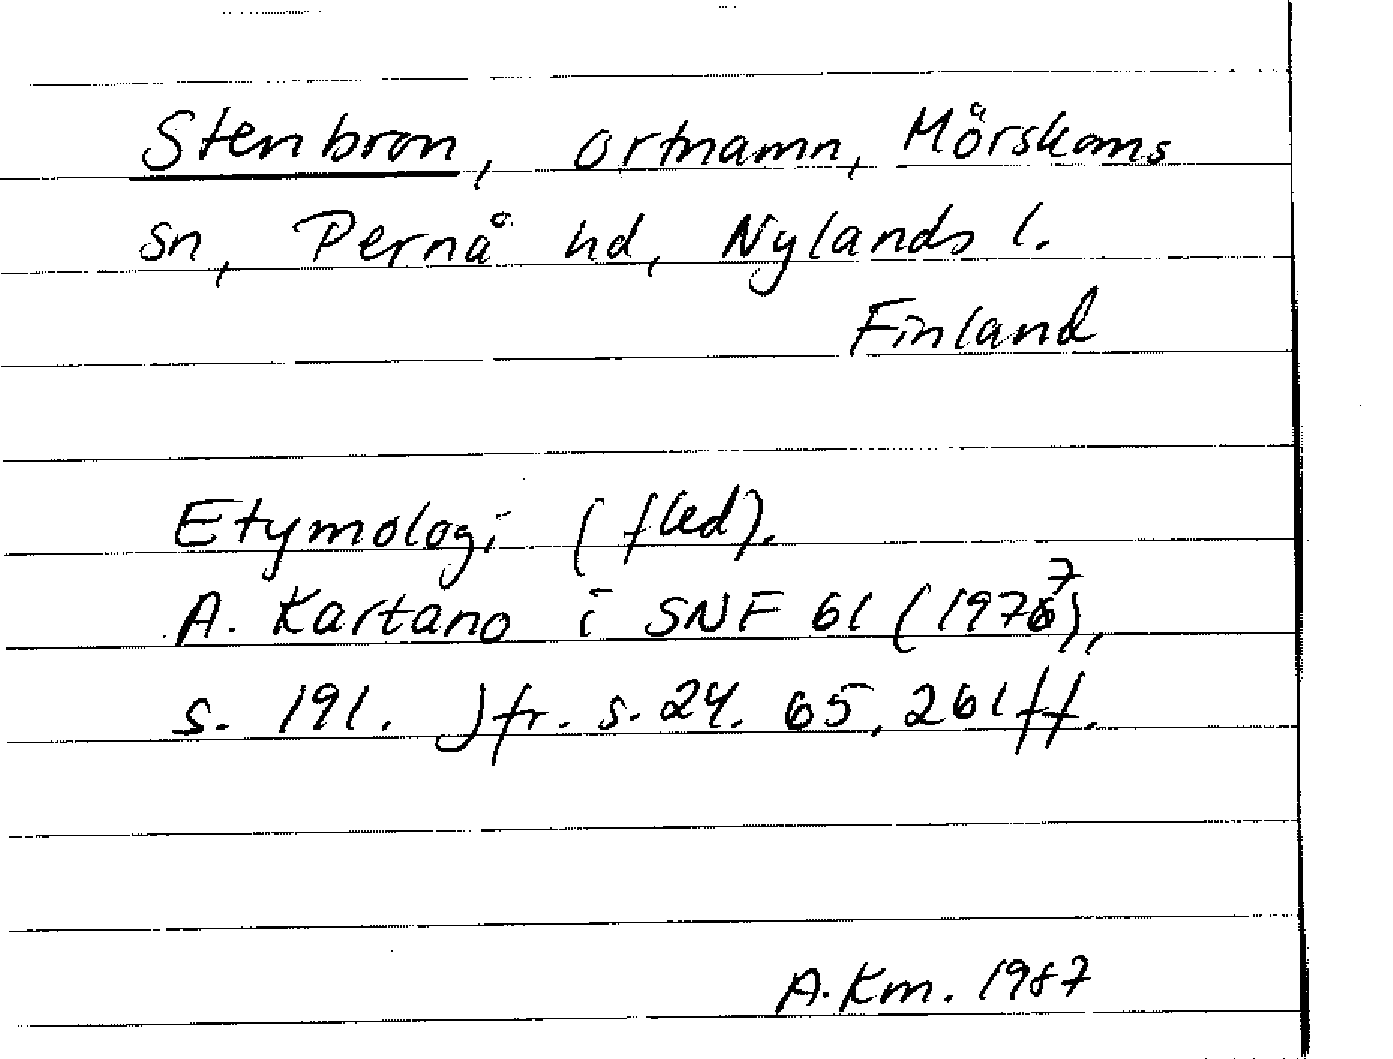 Stenbron, ortnamn, Mörskoms
sn, Pernå hd, Nylands l.
Finland
Etymologi (fled).
A. Kartano i SNF 61 (1977),
s. 191. Jfr. s. 24. 65, 261ff.
A.Km. 1987